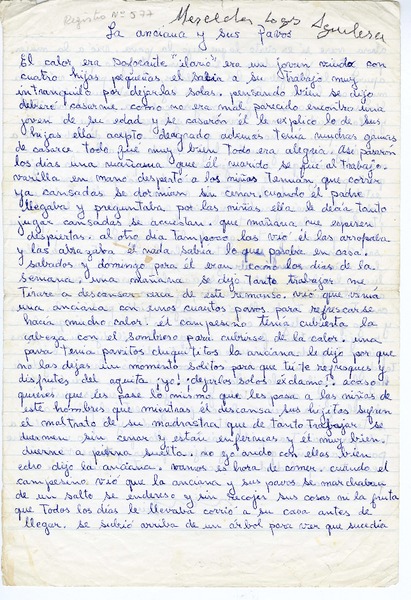 Registro Nº 577
Mercedes Lagos Aguilera
La anciana y sus Pavos
El calor era sofocante "ilario" era un joven viudo con
cuatro hijas pequeñas el salia a su trabajo muy
intranquilo por dejarlas solas. pensando bien se dijo
deberé casarme. como no era mal parecido encontro una
joven de su edad y se casarón él le explico lo de sus
hijas ella acepto de agrado ademas tenia muchas ganas
de casarce todo fue muy bien todo era alegría. Así pasaron
los días una mañana que él marido se fue al trabajo.
varilla en mano desperto a los niñas tenían que correr
ya cansadas se dormían sin cenar. cuando él padre
llegava y preguntaba por las niñas ella le decía tanto
jugar cansadas se acuestan. que mañana me esperen
despiertas. al otro día tampoco las vió él las arropaba
y las abrazaba él nada sabia lo que pasaba en casa.
sabados y domingo para él eran como los dias de la
semana. una mañana se dijo tanto trabajar me
tirare a descansar cerca de este remanso. vió que venía
una anciana con unos cuantos pavos para refrescarse
hacía mucho calor. él campesino tenía cubierta la
cabeza con el sombrero para cubrirse de la calor. una
pava tenia pavitos chiquititos la anciana le dijo por que
no las dejas un momento solitos para que tú te refresques y
disfrutes del aguita ¡yo! ¡dejarlos solos exclamo! acaso
quieres que les pase lo mismo que les pasa a las niñas de
este hombres que mientras él descansa sus hijitas sufren
el maltrato de su madrastra que de tanto trabajar se
duermen sin cenar y están enfermas y él muy bien.
duerme a pierna suelta. no yo ando con ellos bien
echo dijo la anciana. vamos es hora de comer. cuando él
campesino vió que la anciana y sus pavos se marchaban
de un salto se endereso y sin recojer sus cosas ni la fruta
que todos los días le llevaba corrió a su casa antes de
llegar. se subió arriba de un árbol para ver que sucedía